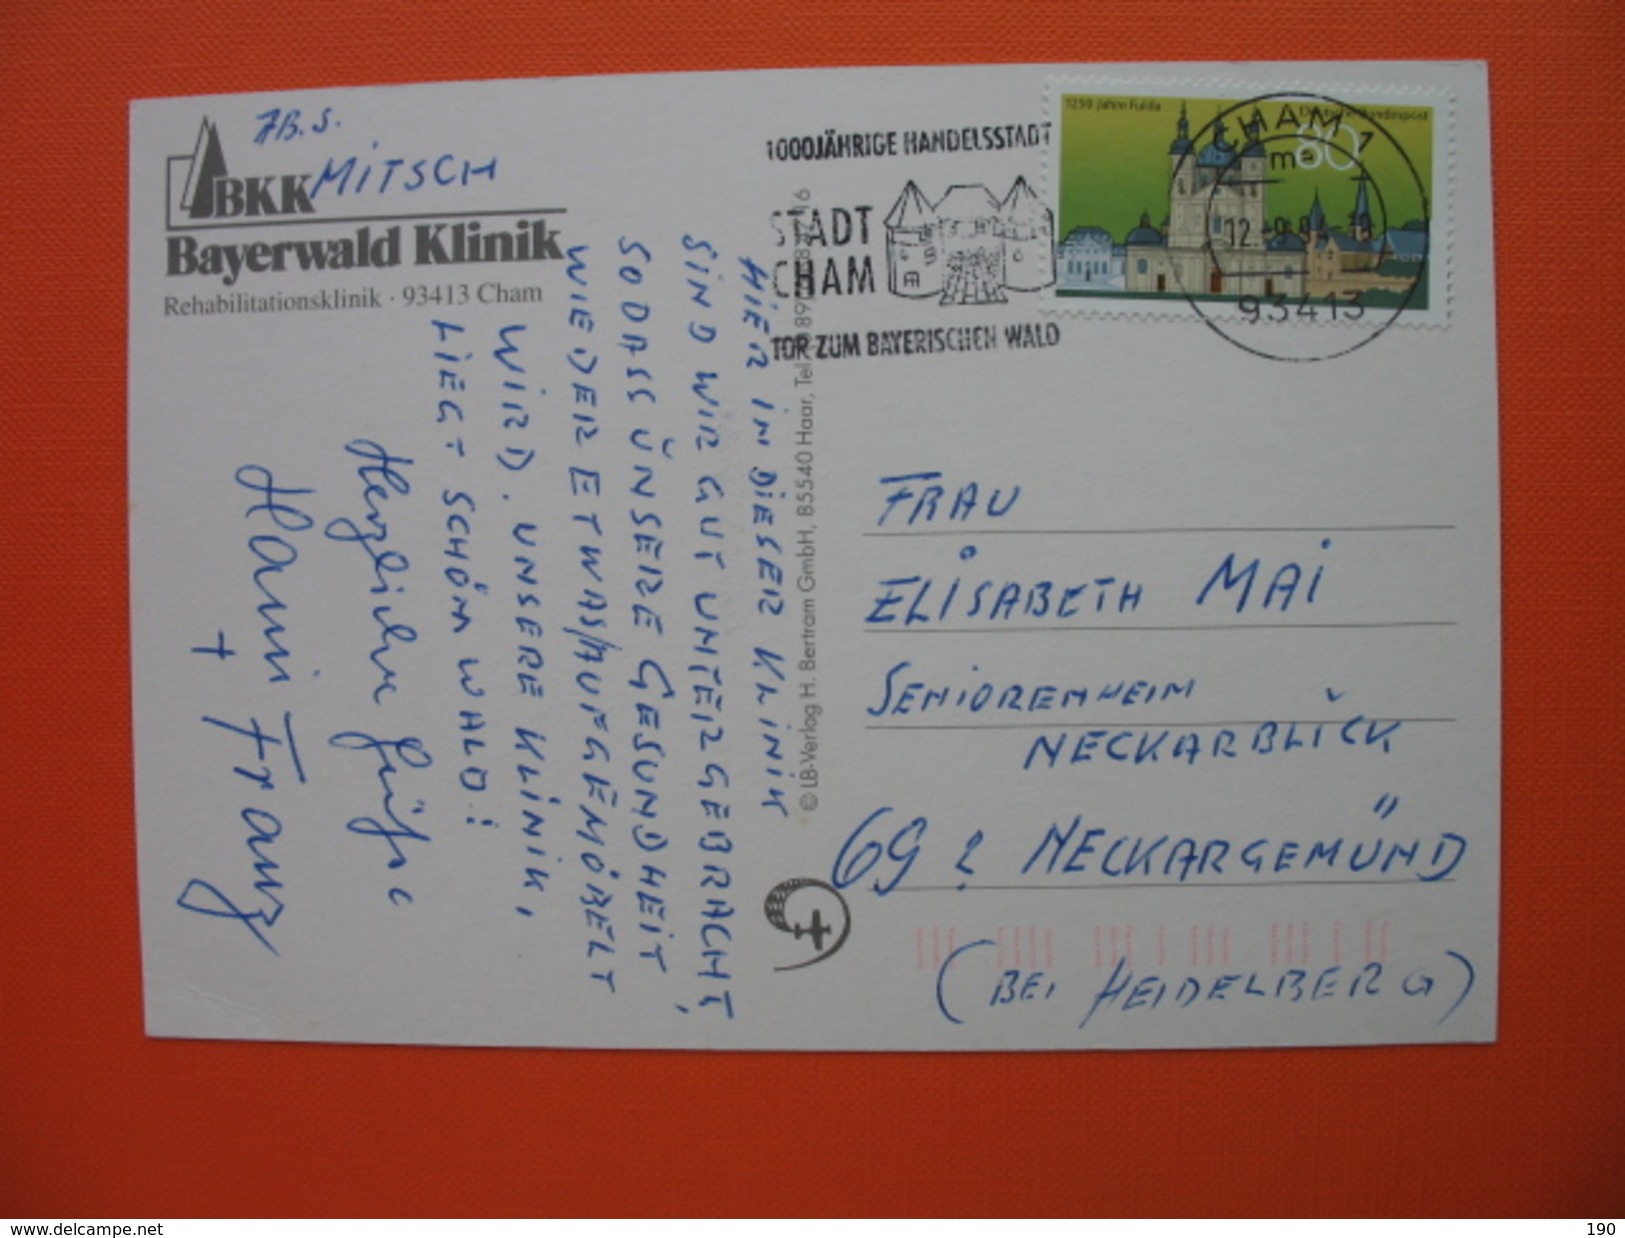 ABS.
MITSCH
BKK
Bayerwald Klinik
Rehabilitationsklinik · 93413 Cham
HIER IN DIESER KLINIK
SIND WIR GUT UNTERGEBRACHT,
SODASS UNSERE GESUNDHEIT
WIEDER ETWAS AUFGEMÖBELT
WIRD. UNSERE KLINIK,
LIEGT SCHÖN WALD!
Herzliche Grüße
Hanni
+
Franz
© LB-Verlag H. Bertram GmbH, 85540 Haar, Tel.
1000JÄHRIGE HANDELSSTADT
STADT
CHAM
TOR ZUM BAYERISCHEN WALD
1250 Jahre Fulda
Deutsche Bundespost
80
CHAM 1
ma
93413
FRAU
ELISABETH MAI
SENIORENHEIM
NECKARBLICK
69 2 NECKARGEMÜND
(BEI HEIDELBERG)
delcampe.net
190